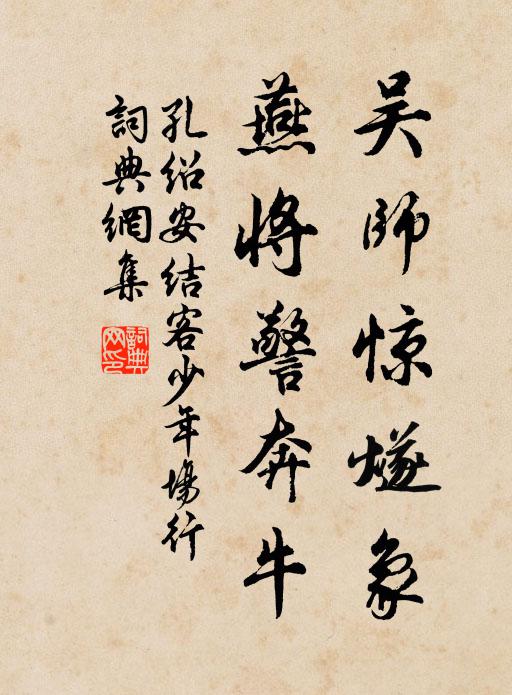 吴師惊燧象
燕将警奔牛
孔绍安结客少年場行
詞典網集
詞典
网印